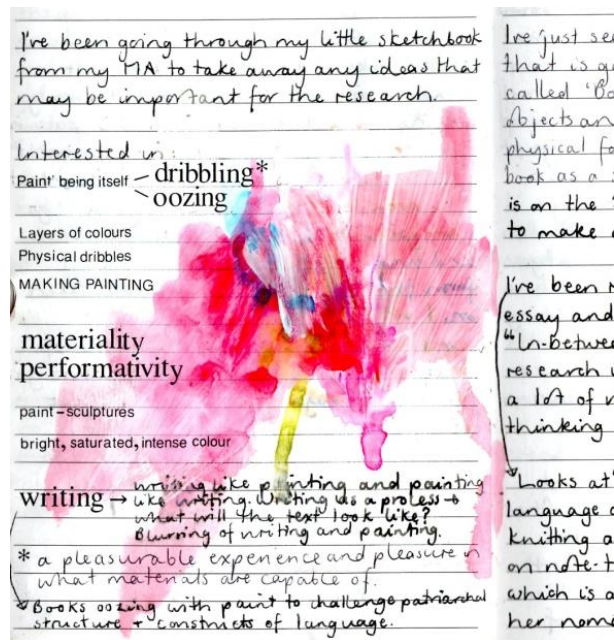 I've been going through my little sketchbook
from my MA to take away any ideas that
may be important for the research.
Interested in:
Paint' being itself – dribbling*
– oozing
Layers of colours
Physical dribbles
MAKING PAINTING
materiality
performativity
paint-sculptures
bright, saturated, intense colour
writing → writing like painting and painting
like writing. Writing as a process →
what will the text look like?
Blurring of writing and painting.
* a pleasurable experience and pleasure in
what materials are capable of.
Books oozing with paint to challenge patriarchal
structure + constructs of language.
I've just
that is
called
objects an
physical
book as a
is on the
to make
I've been
essay and
"In-betwe
research
a lot of
thinking
Looks at
language
knitting
on note-t
which is a
her nom